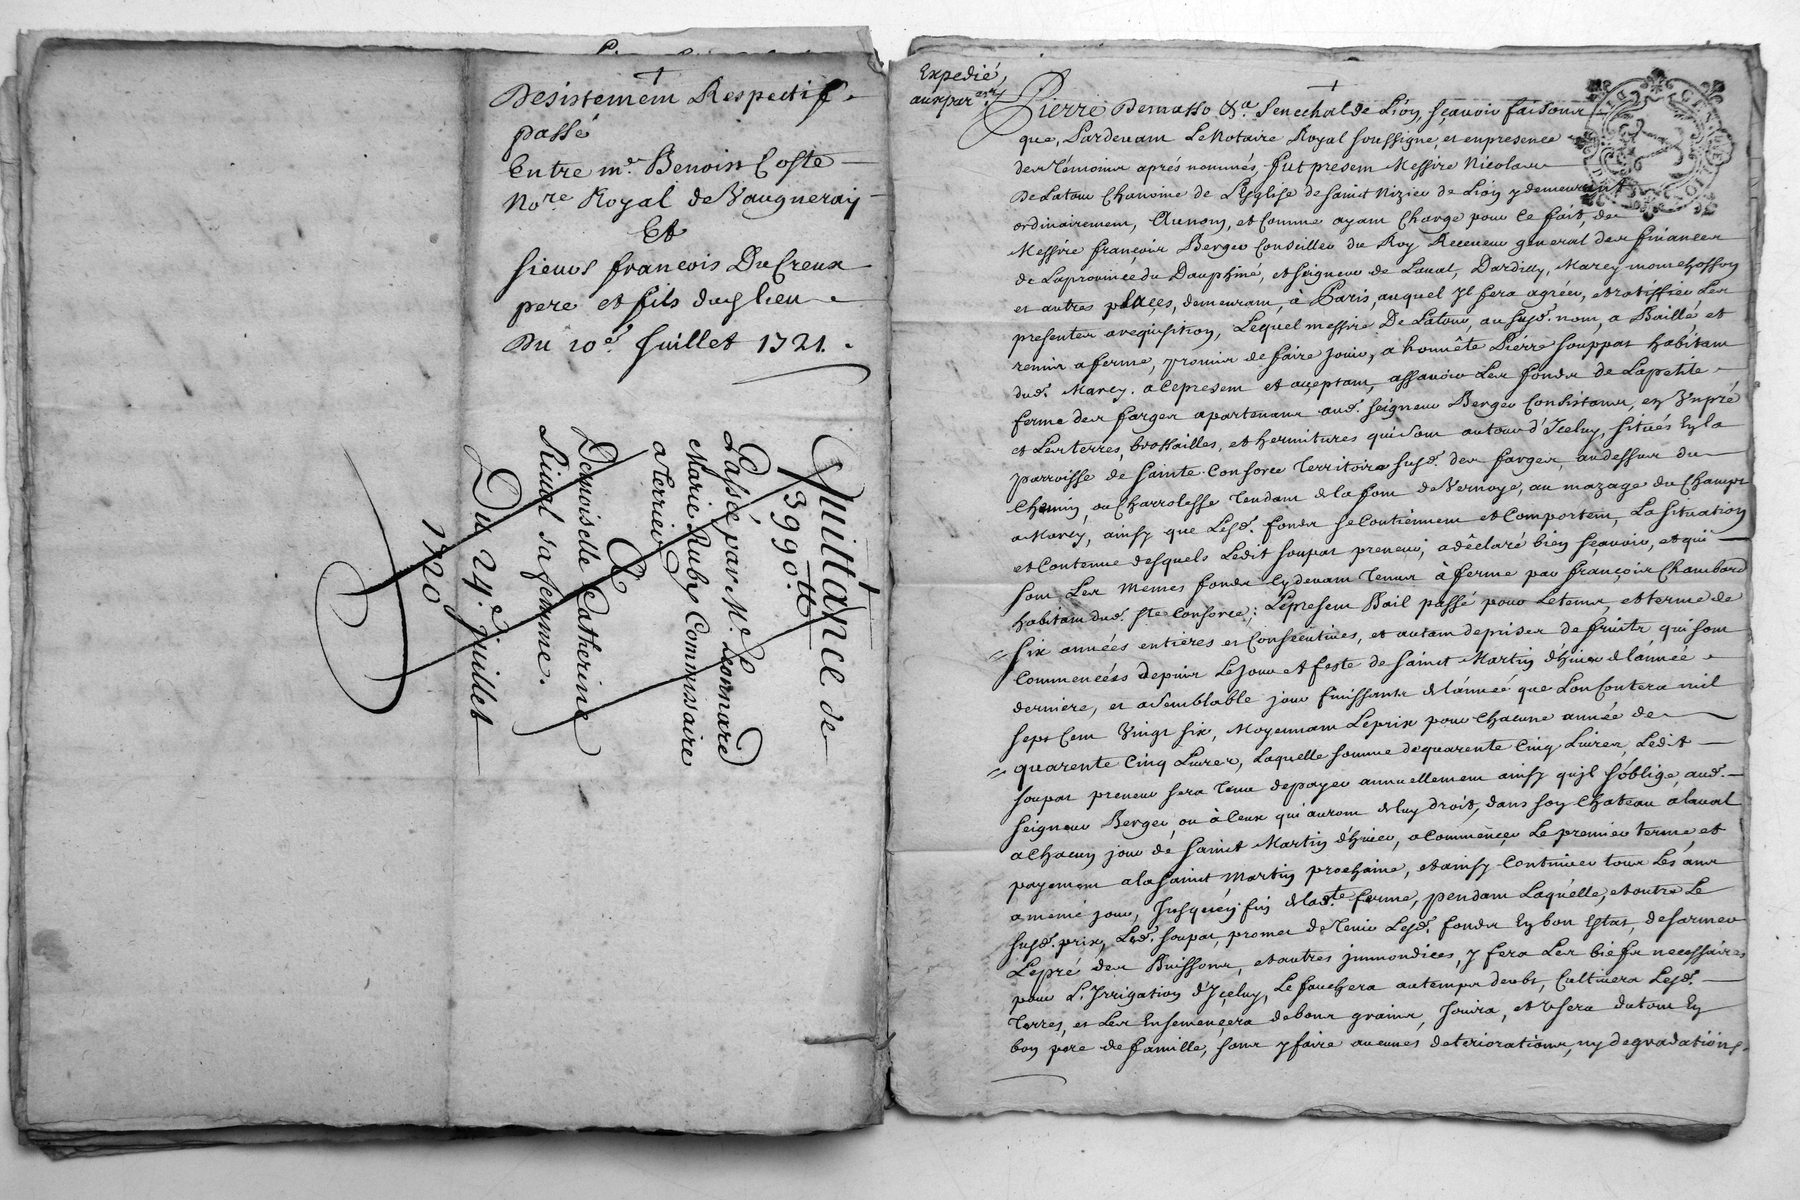 +
Desistement Respectif
passé
Entre me. Benoist Coste
Nore. Royal de Vaugneray
Et
Sieurs françois DuCreux
pere et fils dud. lieu
Du 10e. Juillet 1721.
Quittance de
3990 tt
Passée par Me. Leonnard
Marie Ruby Commissaire
a Terrier
&
Demoiselle Catherine
Rival sa femme.
Du 24e. juillet
1720
Expedié
aux par
+
Pierre Demasso &a. Senechal de Lion, sçavoir faisons
que, Pardevant Le Notaire Royal soussigné, et en presence
des Témoins aprés nommés, fut present Messire Nicolas
De Latour Chanoine de L'Eglise de Saint Nizier de Lion y demeurant
ordinairement, Au nom, et Comme ayant Charge pour Ce fait, de
Messire françois Berger Conseiller du Roy Receveur general des finances
de La province du Dauphiné, et seigneur de Laval, Dardilly, Marcy
et autres places, demeurant, a Paris, auquel yl fera agréer, et ratiffier Les
presentes a requisition, Lequel messire De Latour, au susd. nom, a Baillé et
remis a ferme, promis de faire jouir, a honnête Pierre souppat habitant
dud. Marcy. a Ce present et aceptant, assavoir Les fonds de La petite
ferme des farges apartenant aud. seigneur Berger Consistants, en Un pré
et Les terres, brossailles, et hermitures qui sont autour d'Iceluy, situés En la
parroisse de Sainte Consorce Territoire susd. des farges, au dessus du
Chemin, ou Charrolesse Tendant de la font de Vernoye, au mazage du Champt
a Marcy, ainsy que Lesd. fonds se Contiennent et Comportent, La situation
et Contenue desquels Ledit soupat preneur, a déclaré bien sçavoir, et qui
sont Les Memes fonds Cy devant Tenus à ferme par françois Chambard
habitant dud. Ste Consorce; Le present Bail passé pour Le tems, et terme de
six années entieres et Consecutives, et autant de prises de fruits, qui sont
Commencées depuis Le jour et feste de Saint Martin d'hiver de l'année
derniere, et a semblable jour finissants de l'année que L'on Contera mil
sept Cent Vingt six, Moyennant Le prix pour Chacune année de
quarente Cinq Livres, Laquelle somme de quarente Cinq Livres, Ledit
soupat preneur sera Tenu de payer annuellement ainsy qu'il s'oblige aud.
Seigneur Berger, ou à Ceux qui auront de luy droit, dans son Chateau à laval
a Chacun jour de Saint Martin d'hiver, a Commencer Le premier terme, et
payement a la Saint Martin prochaine, et ainsy Continuer tous Les ans
a meme jour, Jusqu'en fin de lade. ferme, pendant Laquelle, et outre Le
susd. prix, Led. soupat, promet de Tenir Lesd. fonds En bon Estat, desarmer
Le pré des Buissons, et autres immondices, y fera Les biefs necessaires
pour L'Irrigation d'Iceluy, Le fauchera au temps deubt, Cultivera Lesd.
Terres, et Les Ensemencera de bons grains, Jouira, et Usera du tout En
bon pere de famille, sans y faire aucunes deteriorations, ny degradations.